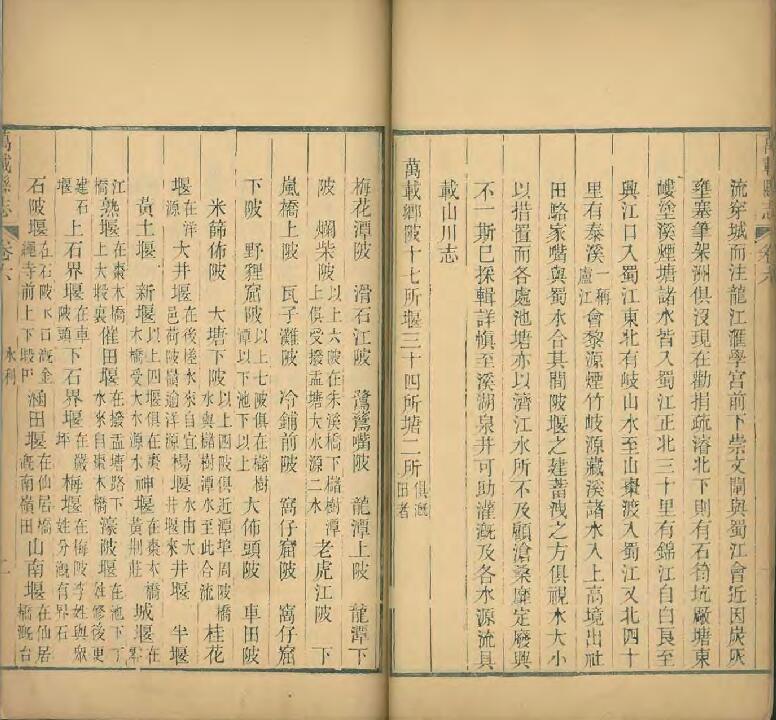 流穿城而注龍江滙學宮前下崇文閘與蜀江會近因炭灰
壅塞筆架洲俱沒現在勸捐疏溶北下則有石筍坑廠塘東
崚塗溪煙塘諸水皆入蜀江正北三十里有錦江自白良至
興江口入蜀江東北有岐山水至山棗渡入蜀江又北四十
里有泰溪一稱盧江會黎源煙竹岐源藏溪諸水入上高境出社
田駱家嘴與蜀水合其間陂堰之建蓄洩之方俱視水大小
以措置而各處池塘亦以濟江水所不及顧滄桑靡定廢興
不一斯已採輯詳慎至溪湖泉井可助灌漑及各水源流具
載山川志
萬載鄉陂十七所堰三十四所塘二所俱漑田者
梅花潭陂 滑石江陂 鷺鷥嘴陂 龍潭上陂 龍潭下
陂 爛柴陂以上六陂在朱溪橋下櫧樹潭上俱受撥盂塘大水源二水 老虎江陂 下
嵐橋上陂 瓦子灘陂 冷鋪前陂 窩仔窟陂 窩仔窟
下陂 野貍窟陂以上七陂俱在櫧樹潭以下池下以上 大佈頭陂 車田陂
米篩佈陂 大塘下陂以上四陂俱近潭埠周陂橋水與櫧樹潭水至此合流 桂花
堰在洋源 大井堰在後槎水來自宜邑荷陂嶺逾洋源 楊堰水由大井堰來 井堰 半堰
黃土堰 新堰以上四堰俱在棗木橋受大水源水 神堰在棗木橋黃荆莊 城堰在棗木
江橋 熟堰在棗木橋上大塅裏 催田堰在撥盂塘路下水來自棗木橋 濠陂堰在池下丁姓修後更
建石堰 上石界堰在車陂頭 下石界堰在嚴坪 梅堰在梅陂李姓與眾姓分漑有界石
石陂堰在石陂下口漑金繩寺前上下塅田 涵田堰在仙居橋漑南嶺田 山南堰在仙居橋漑台
萬載縣志 卷六 水利 二